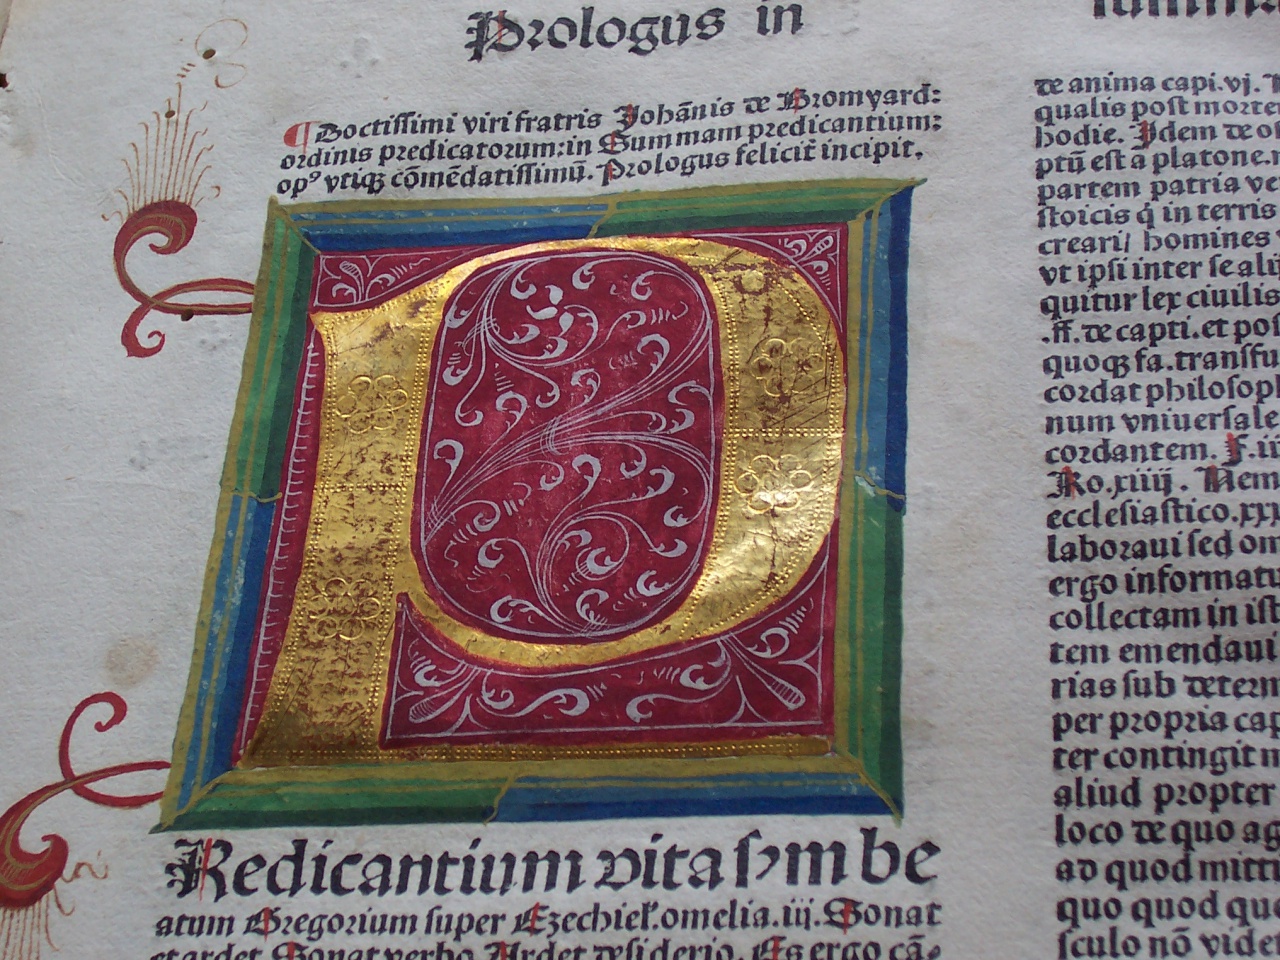 Prologus in
Doctissimi viri fratris Johānis de Bromyard:
ordinis predicatorum: in Summam predicantium:
opꝰ vtiqꝫ cōmēdatissimū. Prologus feliciť incipit.
P
Redicantium vita ſꝫm be
atum Gregorium ſuper Ezechieľ. omelia. iij. Sonat
et ardet Sonat verbo Ardet deſiderio. Es ergo cā⸗
de anima capi. vj.
qualis poſt morte
hodie. Idem de o
ptū eſt a platone.
partem patria ve
ſtoicis q̇ in terris
creari/ homines
vt ipſi inter ſe alij
quitur lex ciuilis
.ff. de capti. et poſ
quoqꝫ fa. tranſfu
cordat philoſoph
num vniuerſale
cordantem. F. ii
Ro. xiiij. Nem
eccleſiaſtico. xxx
laboraui ſed om
ergo informatu
collectam in iſt
tem emendaui
rias ſub determ
per propria cap
ter contingit
aliud propter
loco de quo ag
ad quod mitti
quo quod que
ſculo nō vide